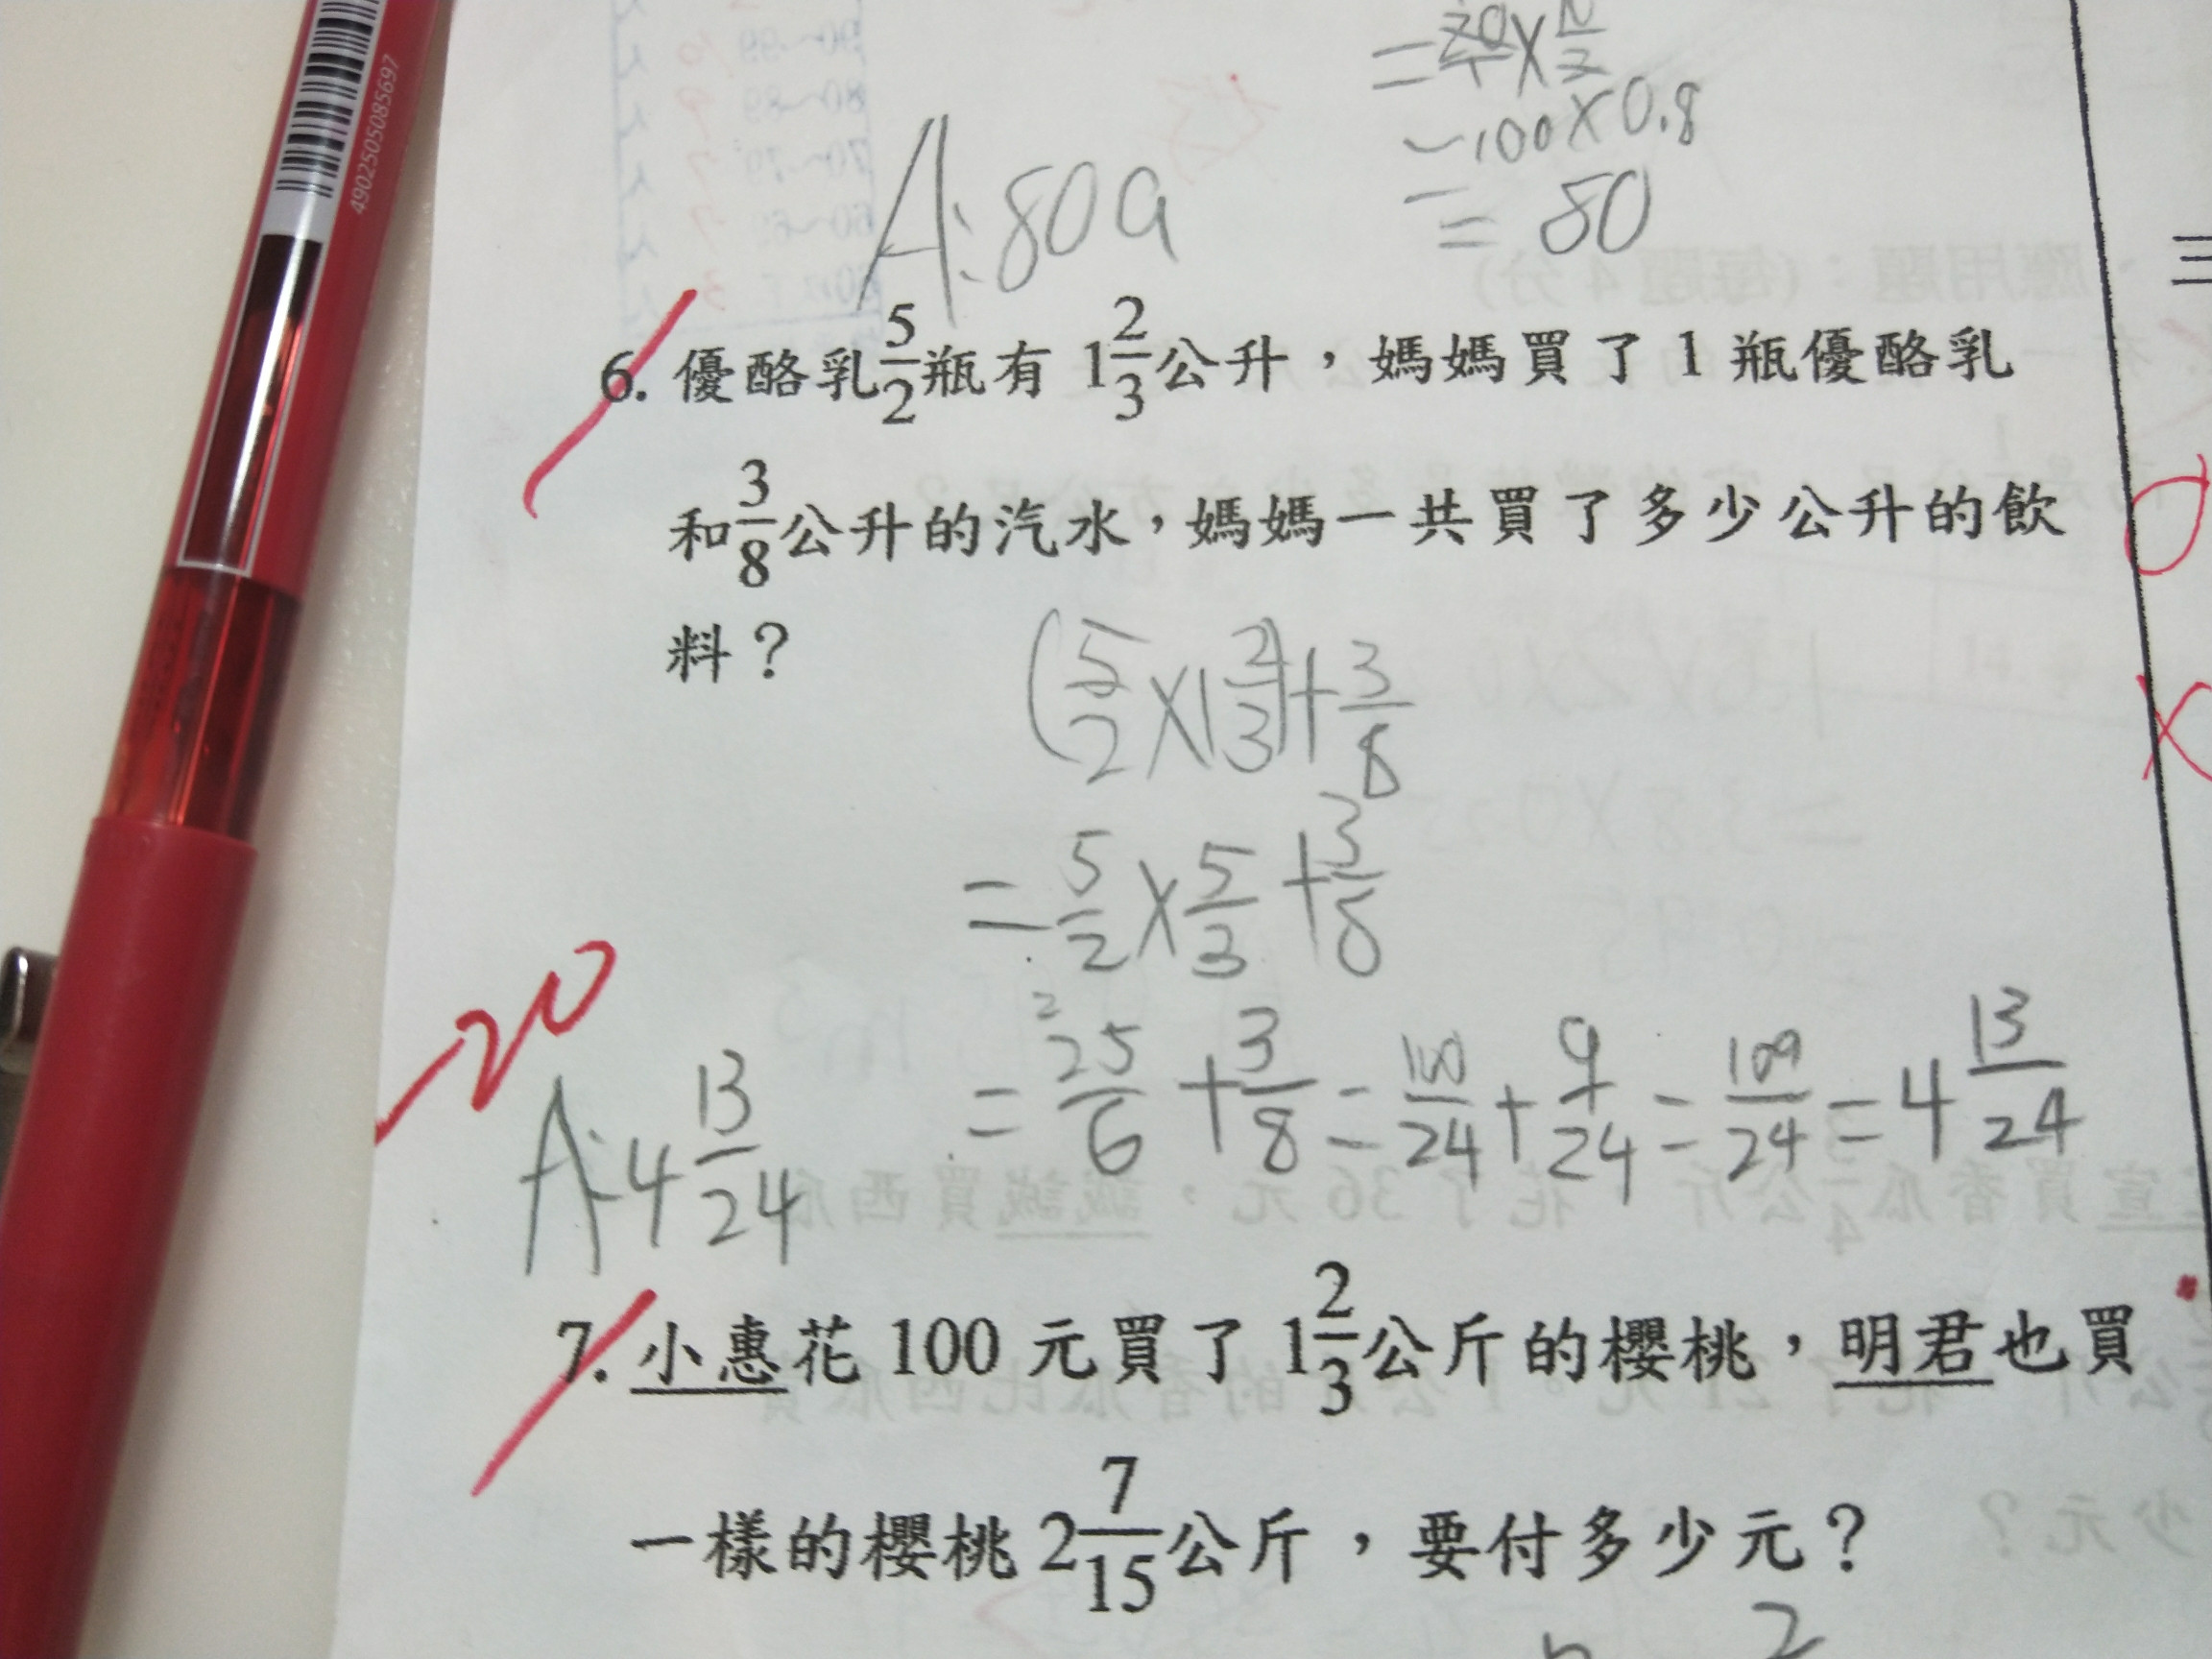 4902505085697
= 20/1 × /3
100×0.8
= 80
A:80a
6. 優酪乳5/2瓶有 1 2/3公升，媽媽買了 1 瓶優酪乳
和3/8公升的汽水，媽媽一共買了多少公升的飲
料？
(5/2×1 2/3)+3/8
=5/2×5/3+3/8
=25/6+3/8=100/24+9/24=109/24=4 13/24
-20
A:4 13/24
7. 小惠花 100 元買了 1 2/3公斤的櫻桃，明君也買
一樣的櫻桃 2 7/15公斤，要付多少元？
三